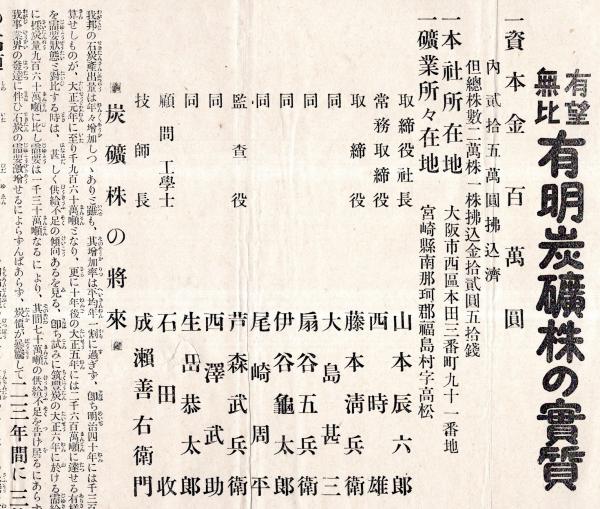 有望無比 有明炭礦株の實質
一資本金 百萬圓
內貳拾五萬圓拂込濟
但總株數二萬株一株拂込金拾貳圓五拾錢
一本社所在地 大阪市西區本田三番町九十一番地
一礦業所々在地 宮崎縣南那珂郡福島村字高松
取締役社長 山本辰六郎
常務取締役 西時雄
取締役 藤本清兵衛
同 大島甚三
同 扇谷五兵衛
同 伊谷龜太郎
同 尾崎周平
監查役 芦森武兵衛
同 西澤武助
同 生嶌恭太郎
顧問工學士 石田收
技師長 成瀬善右衛門
炭礦株の將來
我邦の石炭產出量は年々增加しつゝありと雖も、其增加率は平均年一割に過ぎず、卽ち明治四十年には千三百
算せしものが、大正元年に至り千九百六十萬噸となり、更に十年後の大正五年には二千六百萬噸に達せる有樣
を需要狀態と對比する時は、甚しく供給不足の傾向あるを見る、卽ち試みに筑豐炭の大正六年に於ける需給
に採炭量九百六十萬噸に比し需要は一千三十萬噸なるにより、其間七十萬噸の供給不足を告け居るにあらず
我事業界の發達に伴ひ石炭の需要激增せるによらずんばあらず、炭價が暴騰して二三年間に三